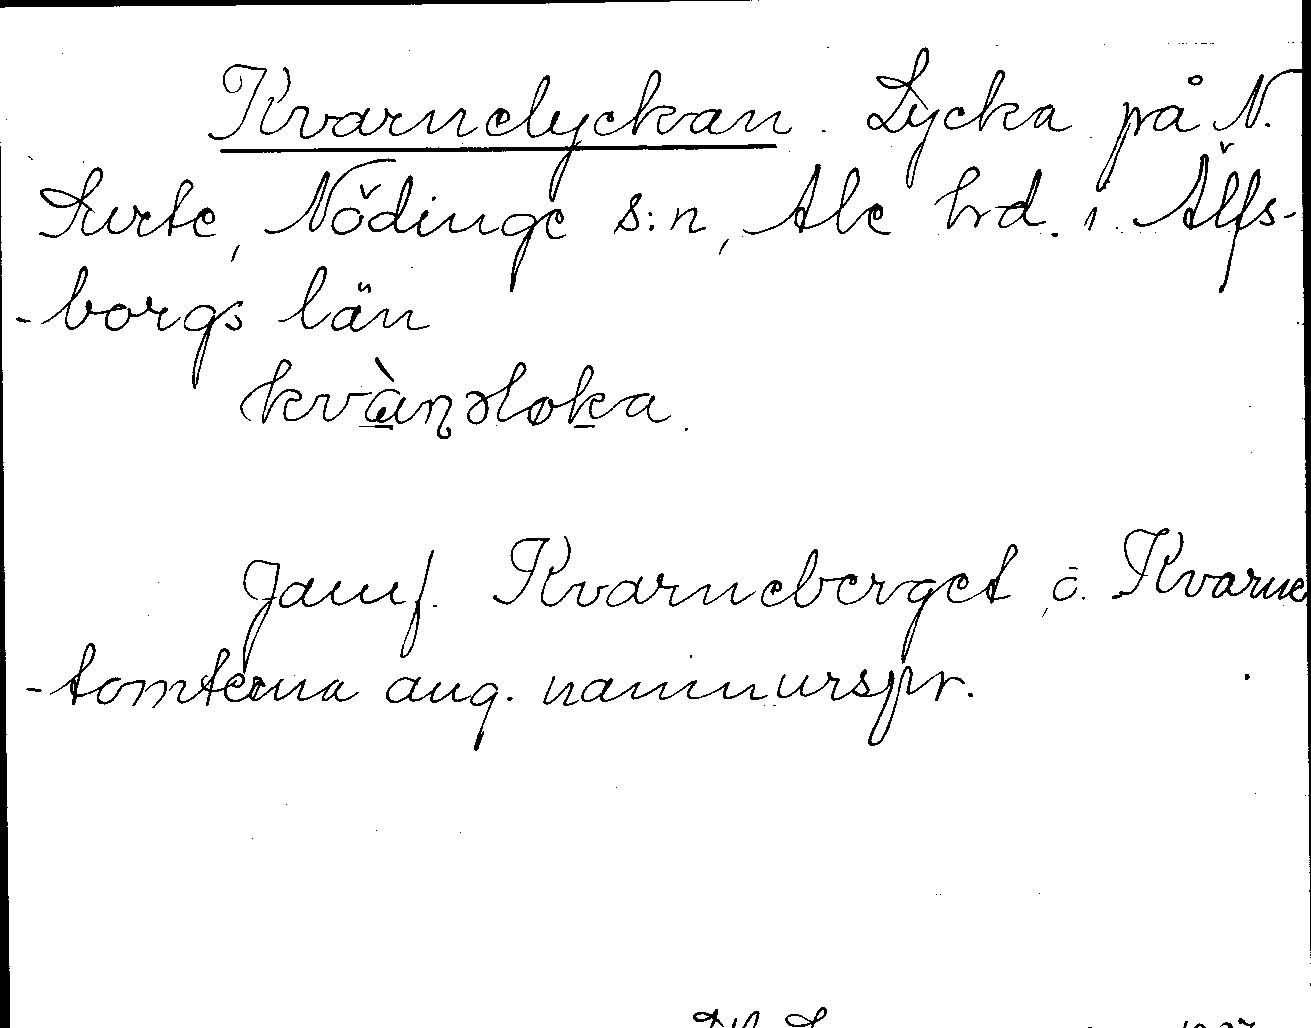 Kvarnelyckan. Lycka på N.
Surte, Nödinge s:n, Ale hrd. i Älfs-
-borgs län
kvàṇəloka.
Jämf. Kvarneberget o. Kvarne
-tomterna ang. namnurspr.